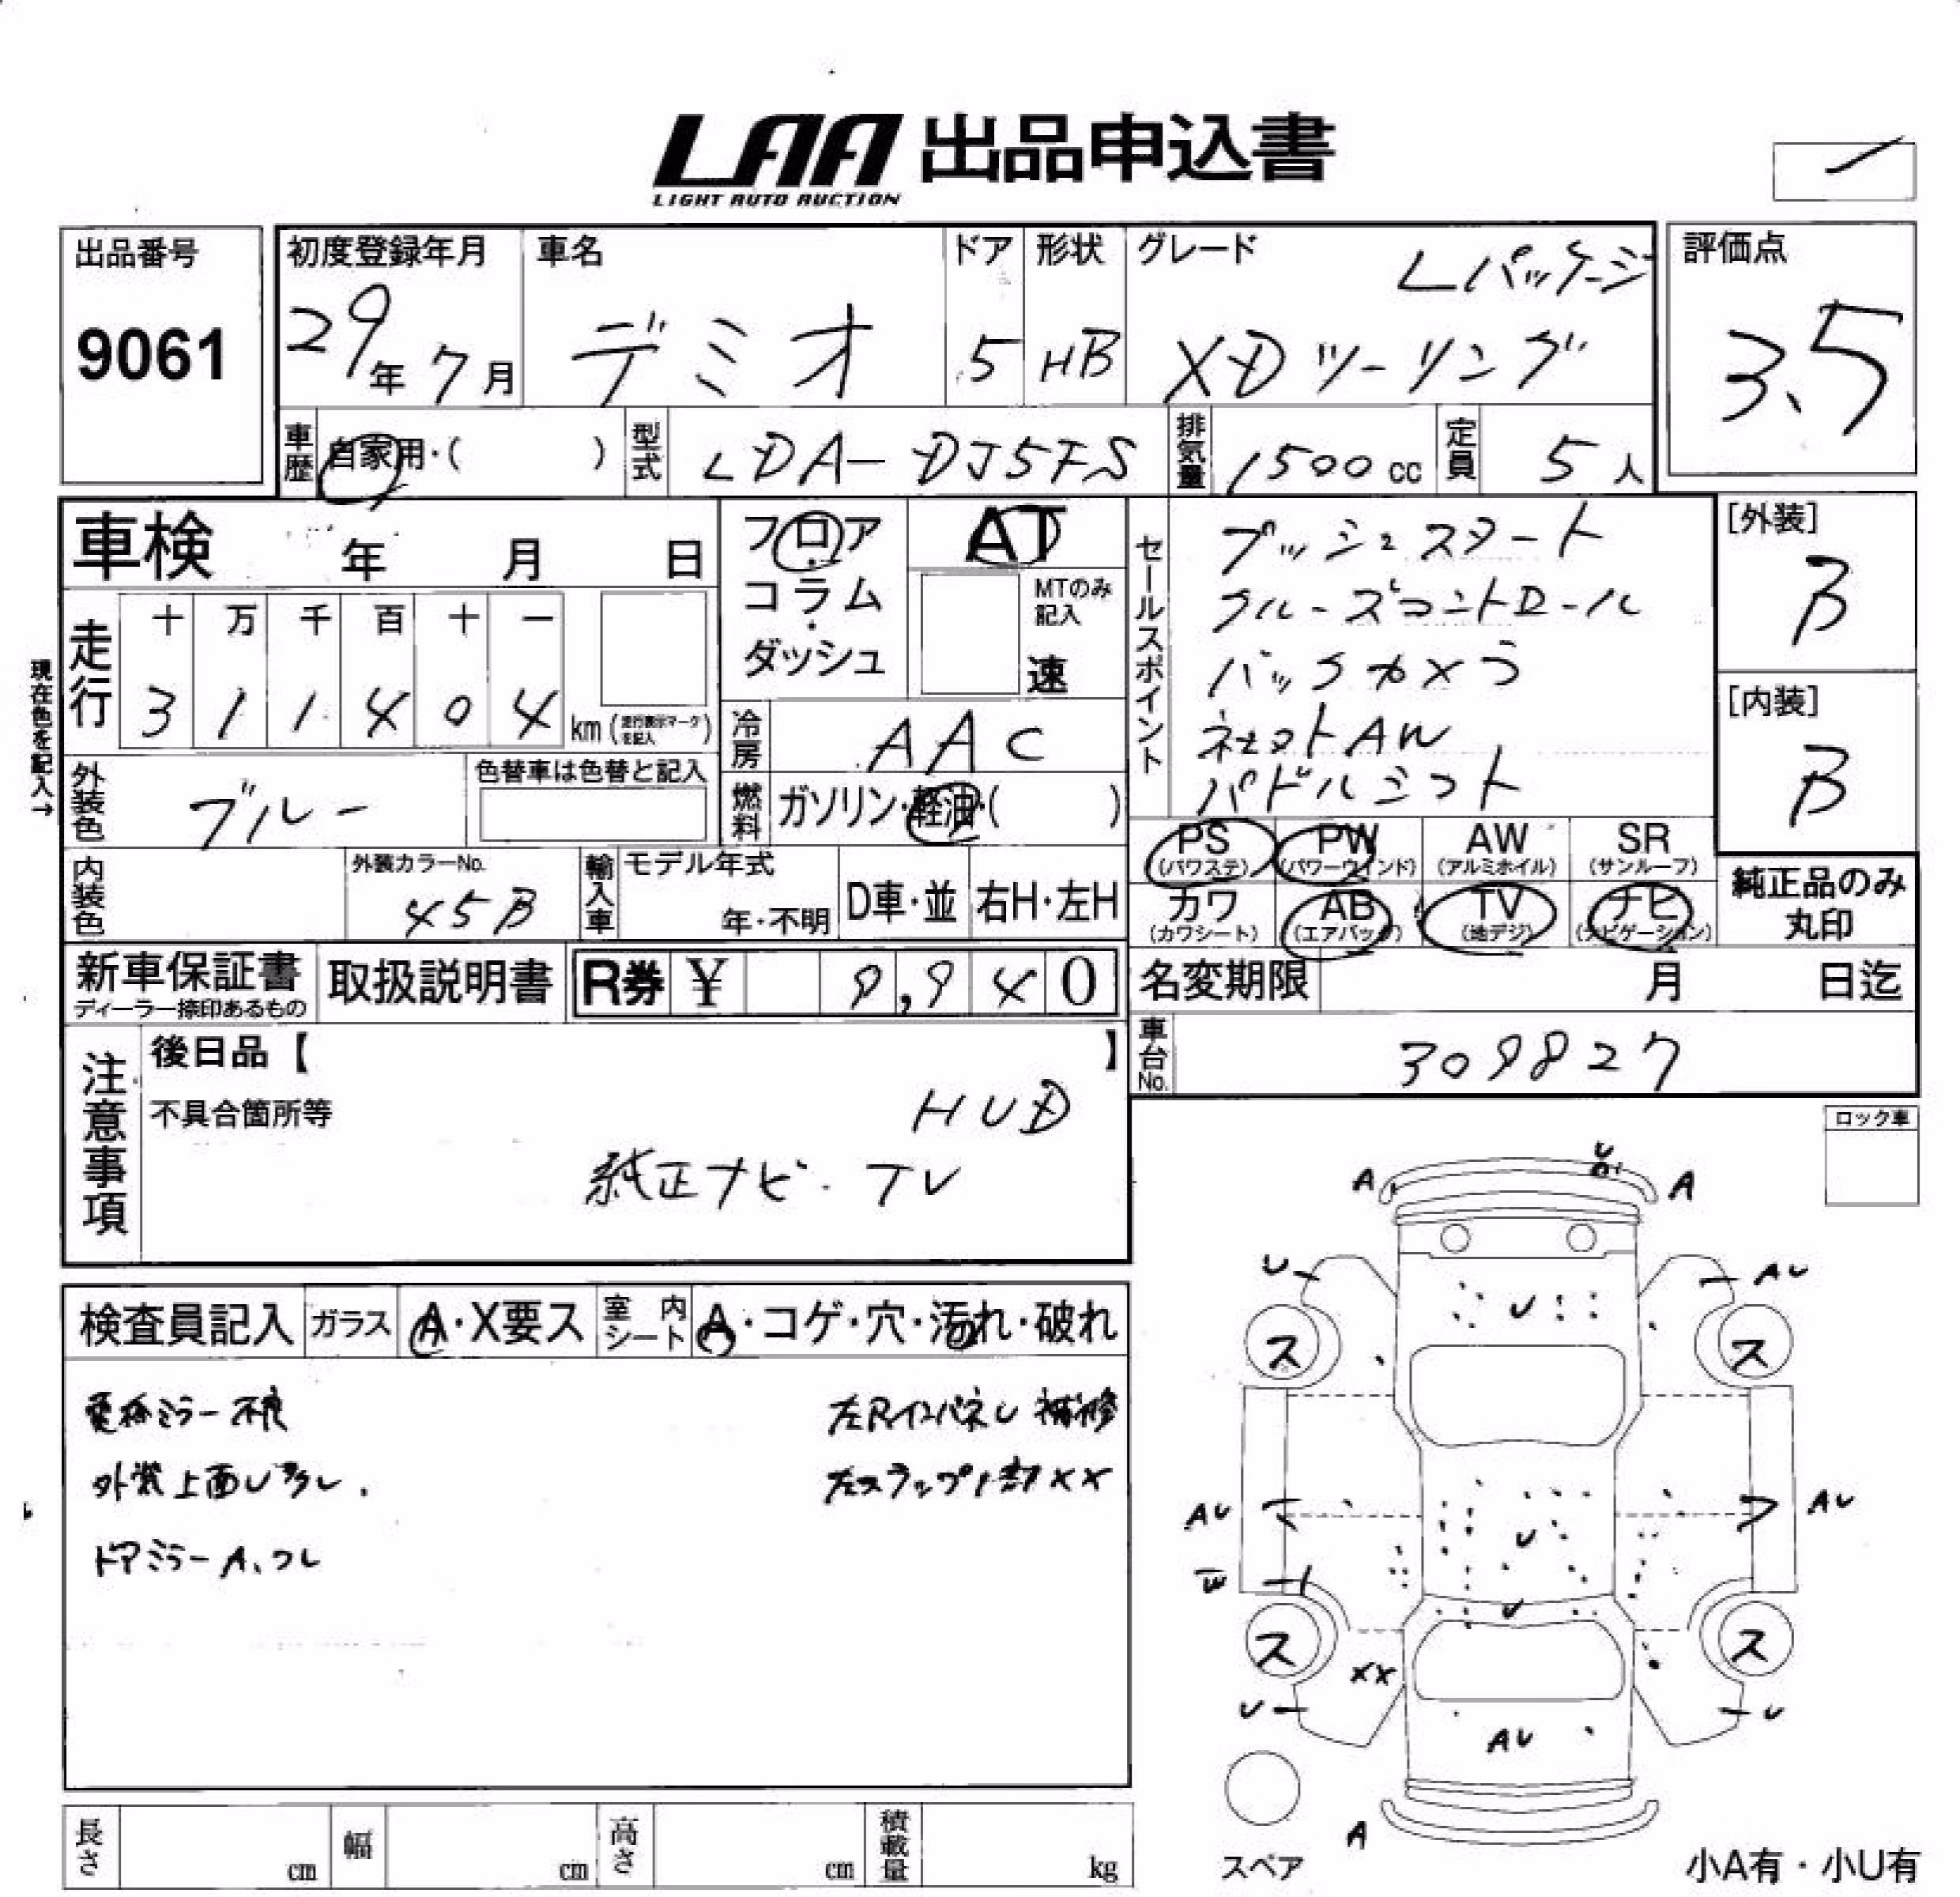 LAA 出品申込書
LIGHT AUTO AUCTION
出品番号
9061
初度登録年月
29年 7月
車名
デミオ
ドア
5
形状
HB
グレード
Lパッケージ
XDツーリング
評価点
3.5
車歴 自家用・( )
型式 LDA-DJ5FS
排気量 1500cc
定員 5人
車検 年 月 日
フロア
コラム
・
ダッシュ
AT
MTのみ
記入
速
セールスポイント
プッシュスタート
クルーズコントロール
バックカメラ
パドルシフト
[外装]
B
[内装]
B
現在色を記入→
走行
十 万 千 百 十 一
3 1 1 4 0 4 km (走行表示マークを記入)
冷房 AAC
燃料 ガソリン・軽油・( )
外装色 ブルー
色替車は色替と記入
内装色
外装カラーNo.
45B
輸入車
モデル年式
年・不明
D車・並
右H・左H
PS
(パワステ)
PW
(パワーウィンド)
AW
(アルミホイル)
SR
(サンルーフ)
カワ
(カワシート)
AB
(エアバッグ)
TV
(地デジ)
ナビ
(ナビゲーション)
純正品のみ
丸印
新車保証書
ディーラー捺印あるもの
取扱説明書
R券 ¥ 9,940
名変期限 月 日迄
車台No. 309827
注意事項
後日品【 】
不具合箇所等
HUD
純正ナビ・TV
ロック車
検査員記入
ガラス A・X要ス
室内シート A・コゲ・穴・汚れ・破れ
電格ミラー不良
外装上面U多し.
ドアミラーA、コレ
補修
XX
U
A
A
U
AU
U
ス
ス
AU
AU
U
W
U
ス
ス
XX
U
U
AU
A
スペア
小A有・小U有
長さ cm
幅 cm
高さ cm
積載量 kg